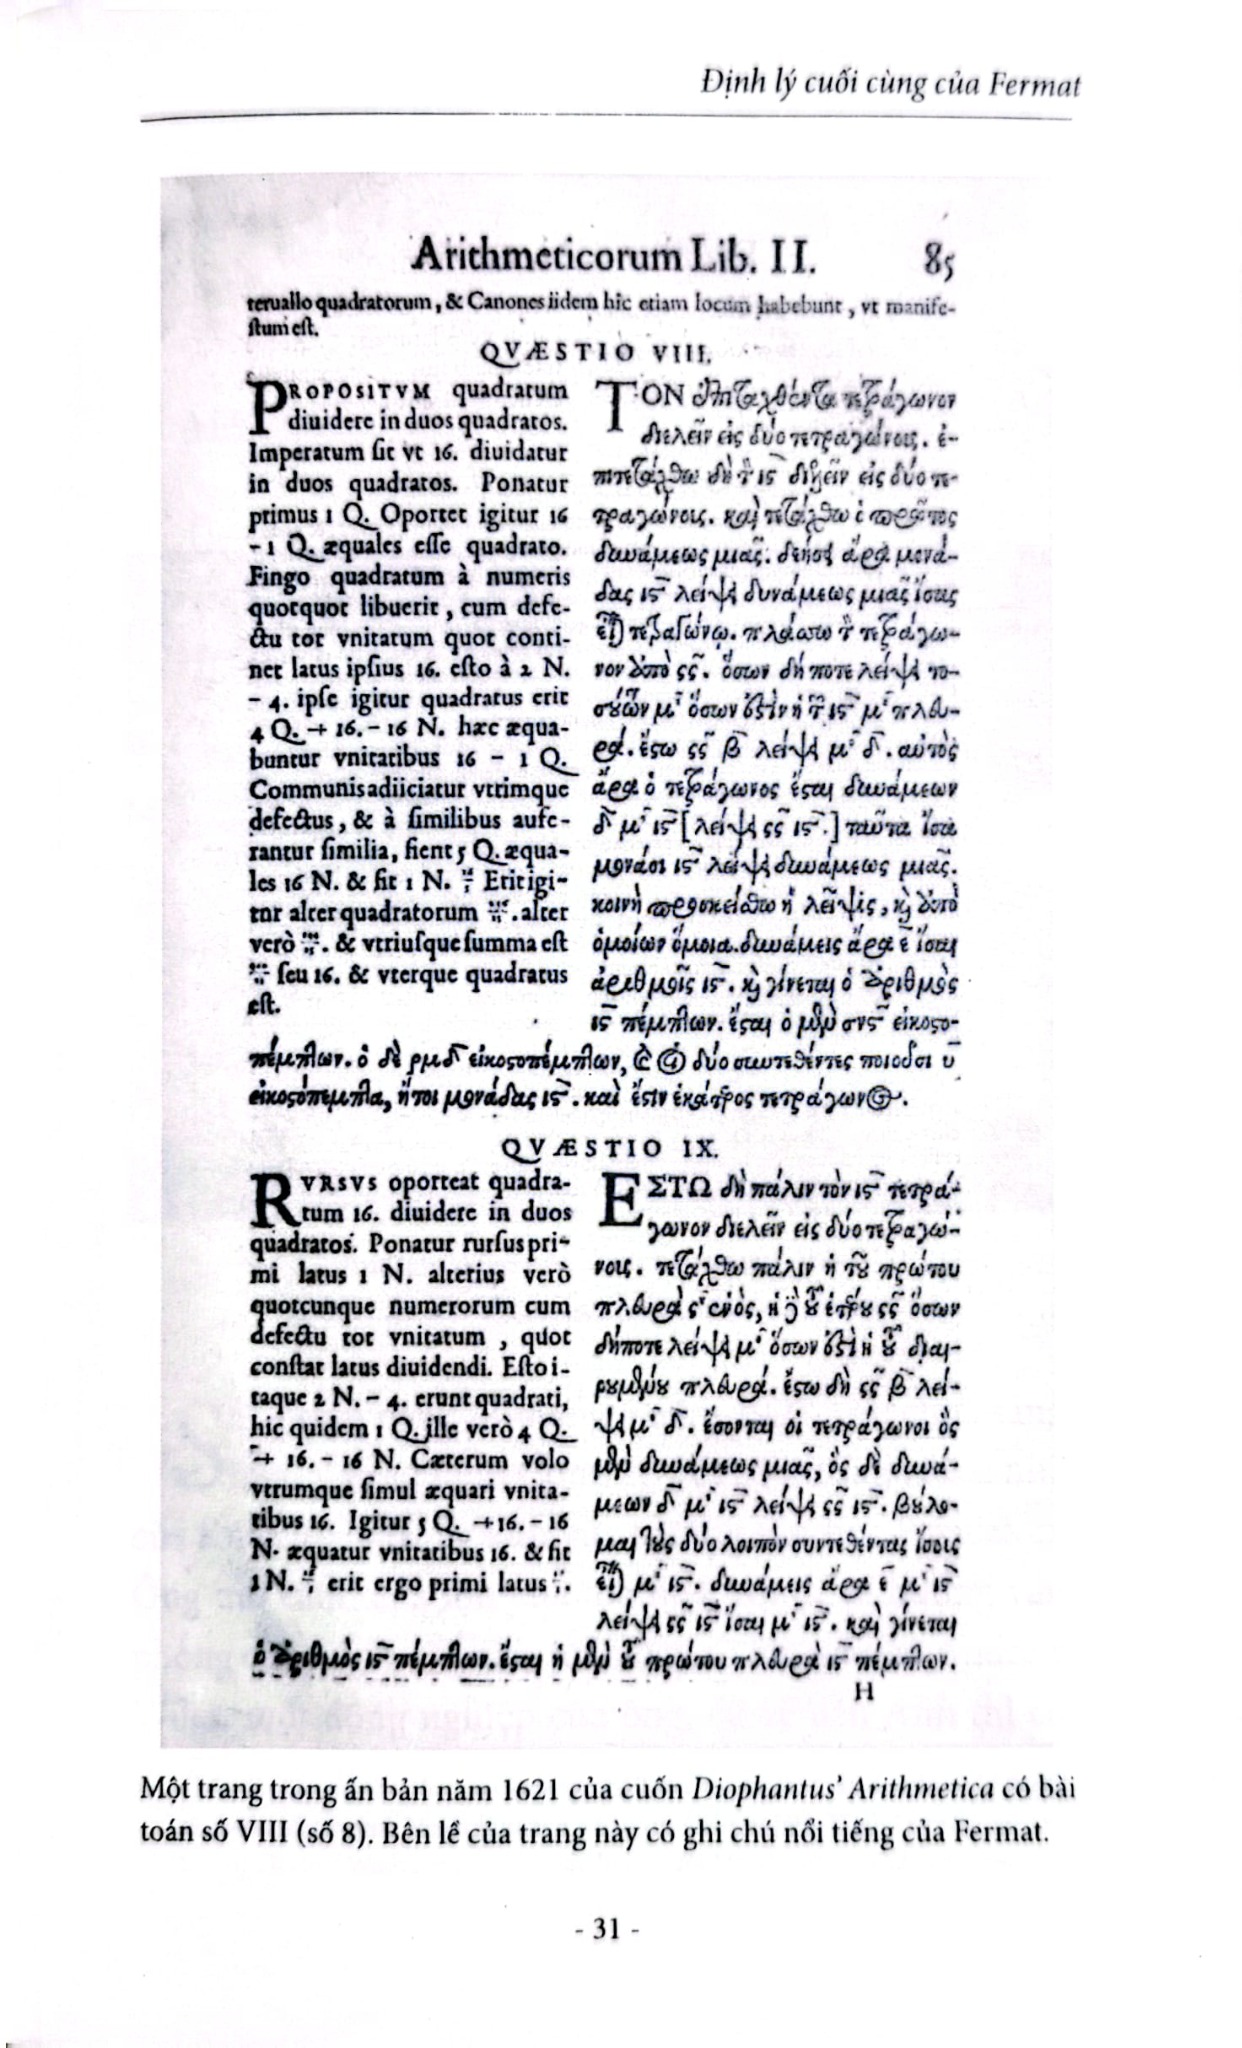 Định lý cuối cùng của Fermat
Arithmeticorum Lib. II. 85
teruallo quadratorum, & Canones iidem hic etiam locum habebunt, vt manife-
stum est.
QVÆSTIO VIII.
PROPOSITVM quadratum
diuidere in duos quadratos.
Imperatum sit vt 16. diuidatur
in duos quadratos. Ponatur
primus 1 Q. Oportet igitur 16
- 1 Q. æquales esse quadrato.
Fingo quadratum à numeris
quotquot libuerit, cum defe-
ctu tot vnitatum quot conti-
net latus ipsius 16. esto à 2 N.
- 4. ipse igitur quadratus erit
4 Q. + 16. - 16 N. hæc æqua-
buntur vnitatibus 16 - 1 Q.
Communis adiiciatur vtrimque
defectus, & à similibus aufe-
rantur similia, fient 5 Q. æqua-
les 16 N. & fit 1 N. Erit igi-
tur alter quadratorum . alter
verò . & vtriusque summa est
seu 16. & vterque quadratus
est.
ΤΟΝ ἐπιταχθέντα τετράγωνον
διελεῖν εἰς δύο τετραγώνους. ἐ-
πιτετάχθω δὴ τὸν ιϛ διελεῖν εἰς δύο τε-
τραγώνους. καὶ τετάχθω ὁ πρῶτος
δυνάμεως μιᾶς. δεήσει ἄρα μονά-
δας ιϛ λείψει δυνάμεως μιᾶς ἴσας
εἶναι τετραγώνῳ. πλάσσω τὸν τετράγω-
νον ἀπὸ ςς. ὅσων δή ποτε λείψει το-
σούτων μο ὅσων ἐστὶν ἡ τῶν ιϛ μο πλευ-
ρά. ἔστω ςς β λείψει μο δ. αὐτὸς
ἄρα ὁ τετράγωνος ἔσται δυνάμεων
δ μο ιϛ [λείψει ςς ιϛ.] ταῦτα ἴσα
μονάσι ιϛ λείψει δυνάμεως μιᾶς.
κοινὴ προσκείσθω ἡ λεῖψις, καὶ ἀπὸ
ὁμοίων ὅμοια. δυνάμεις ἄρα ε ἴσαι
ἀριθμοῖς ιϛ. καὶ γίνεται ὁ ἀριθμὸς
ιϛ πέμπτων. ἔσται ὁ μὲν σνϛ εἰκοστο-
πέμπτων. ὁ δὲ ρμδ εἰκοστοπέμπτων, καὶ οἱ δύο συντεθέντες ποιοῦσι υ
εἰκοστόπεμπτα, ἤτοι μονάδας ιϛ. καὶ ἔστιν ἑκάτερος τετράγωνος.
QVÆSTIO IX.
RVRSVS oporteat quadra-
tum 16. diuidere in duos
quadratos. Ponatur rursus pri-
mi latus 1 N. alterius verò
quotcunque numerorum cum
defectu tot vnitatum, quot
constat latus diuidendi. Esto i-
taque 2 N. - 4. erunt quadrati,
hic quidem 1 Q. ille verò 4 Q.
+ 16. - 16 N. Cæterum volo
vtrumque simul æquari vnita-
tibus 16. Igitur 5 Q. + 16. - 16
N. æquatur vnitatibus 16. & fit
1 N. erit ergo primi latus
ΕΣΤΩ δὴ πάλιν τὸν ιϛ τετρά-
γωνον διελεῖν εἰς δύο τετραγώ-
νους. τετάχθω πάλιν ἡ τοῦ πρώτου
πλευρὰ ς ἑνός, ἡ δὲ τοῦ ἑτέρου ςς ὅσων
δήποτε λείψει μο ὅσων ἐστὶ ἡ τοῦ διαι-
ρουμένου πλευρά. ἔστω δὴ ςς β λεί-
ψει μο δ. ἔσονται οἱ τετράγωνοι ὃς
μὲν δυνάμεως μιᾶς, ὃς δὲ δυνά-
μεων δ μο ιϛ λείψει ςς ιϛ. βούλο-
μαι τοὺς δύο λοιπὸν συντεθέντας ἴσους
εἶναι μο ιϛ. δυνάμεις ἄρα ε μο ιϛ
λείψει ςς ιϛ ἴσαι μο ιϛ. καὶ γίνεται
ὁ ἀριθμὸς ιϛ πέμπτων. ἔσται ἡ μὲν τοῦ πρώτου πλευρὰ ιϛ πέμπτων.
H
Một trang trong ấn bản năm 1621 của cuốn Diophantus' Arithmetica có bài
toán số VIII (số 8). Bên lề của trang này có ghi chú nổi tiếng của Fermat.
- 31 -